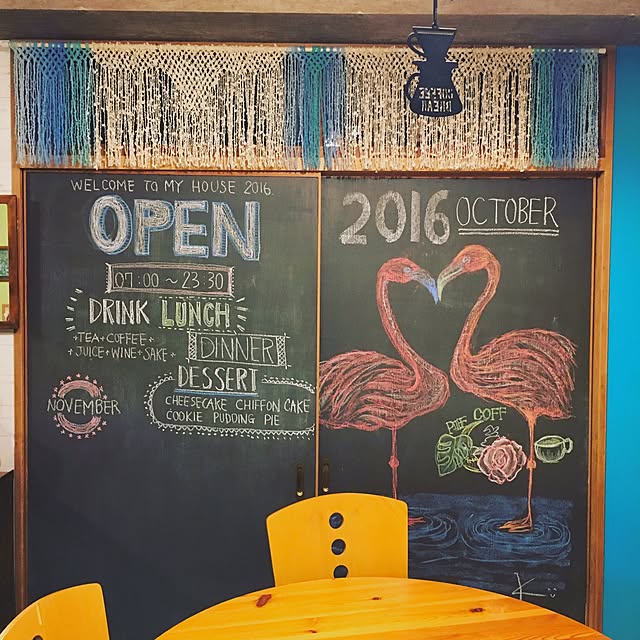 WELCOME TO MY HOUSE 2016.
OPEN
07:00 ~ 23:30
DRINK LUNCH
+TEA+COFFEE+
+JUICE+WINE+SAKE+
DINNER
DESSERT
CHEESECAKE CHIFFON CAKE
COOKIE PUDDING PIE
NOVEMBER
2016 OCTOBER
COFFEE